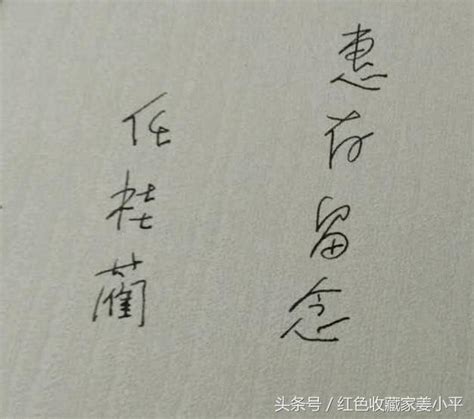 惠存留念
任桂蘭
头条号/红色收藏家姜小平